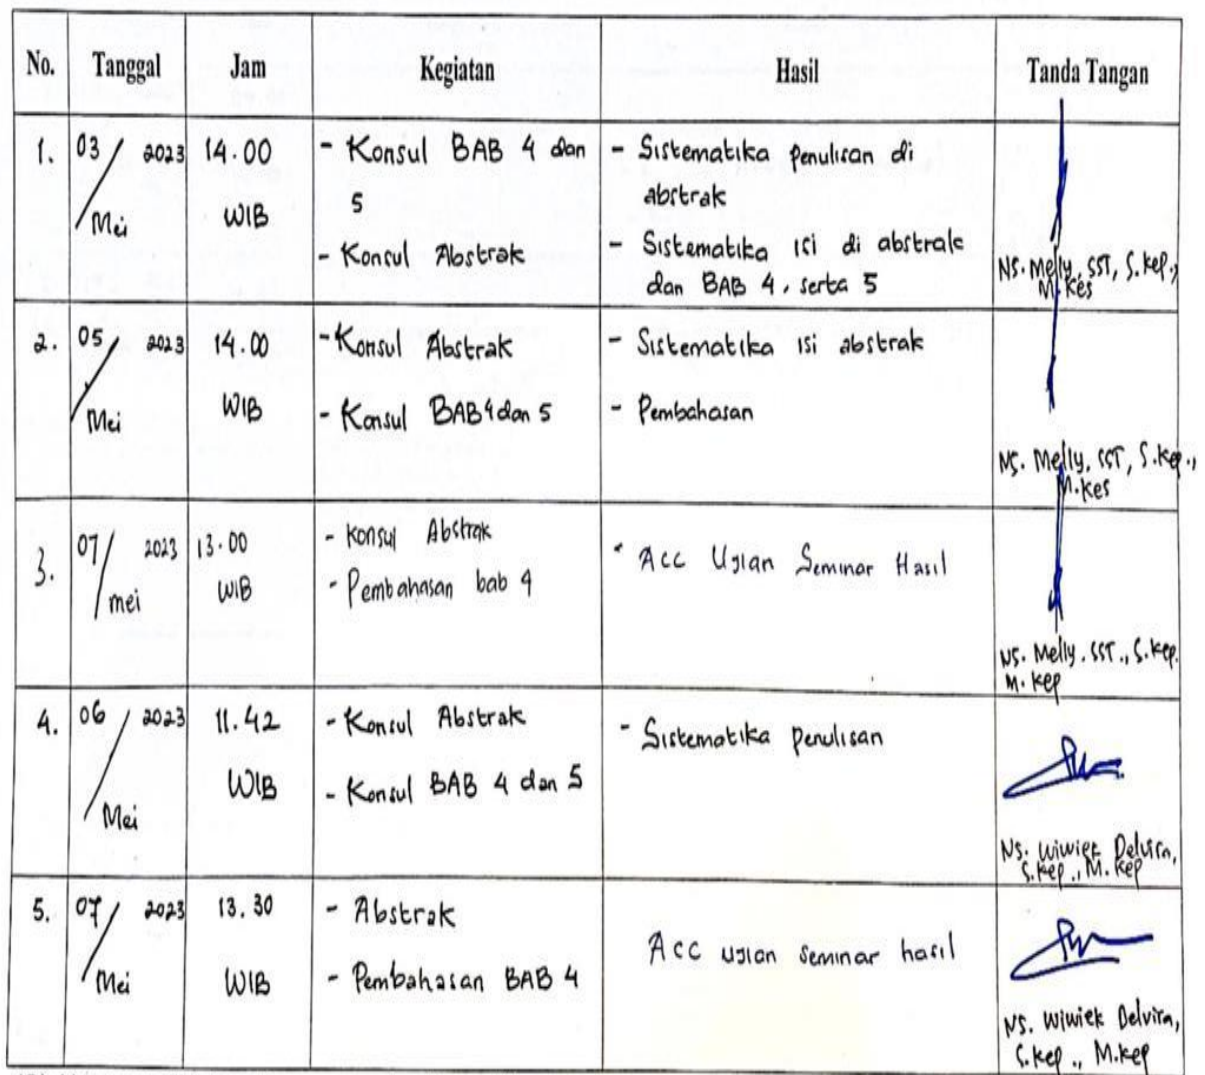 No. Tanggal Jam Kegiatan Hasil Tanda Tangan
1. 03/Mei 2023 14.00 WIB
- Konsul BAB 4 dan
5
- Konsul Abstrak
- Sistematika penulisan di
abstrak
- Sistematika isi di abstrak
dan BAB 4, serta 5
NS. Melly, SST, S.kep.,
M.kes
2. 05/Mei 2023 14.00 WIB
- Konsul Abstrak
- Konsul BAB 4 dan 5
- Sistematika isi abstrak
- Pembahasan
NS. Melly, SST, S.kep.,
M.kes
3. 07/mei 2023 13.00 WIB
- konsul Abstrak
- Pembahasan bab 4
- Acc Ujian Seminar Hasil
NS. Melly. SST., S.kep.
M.kep
4. 06/Mei 2023 11.42 WIB
- Konsul Abstrak
- Konsul BAB 4 dan 5
- Sistematika penulisan
NS. Wiwiek Delvira,
S.kep., M.kep
5. 07/Mei 2023 13.30 WIB
- Abstrak
- Pembahasan BAB 4
Acc ujian seminar hasil
NS. Wiwiek Delvira,
S.kep., M.kep